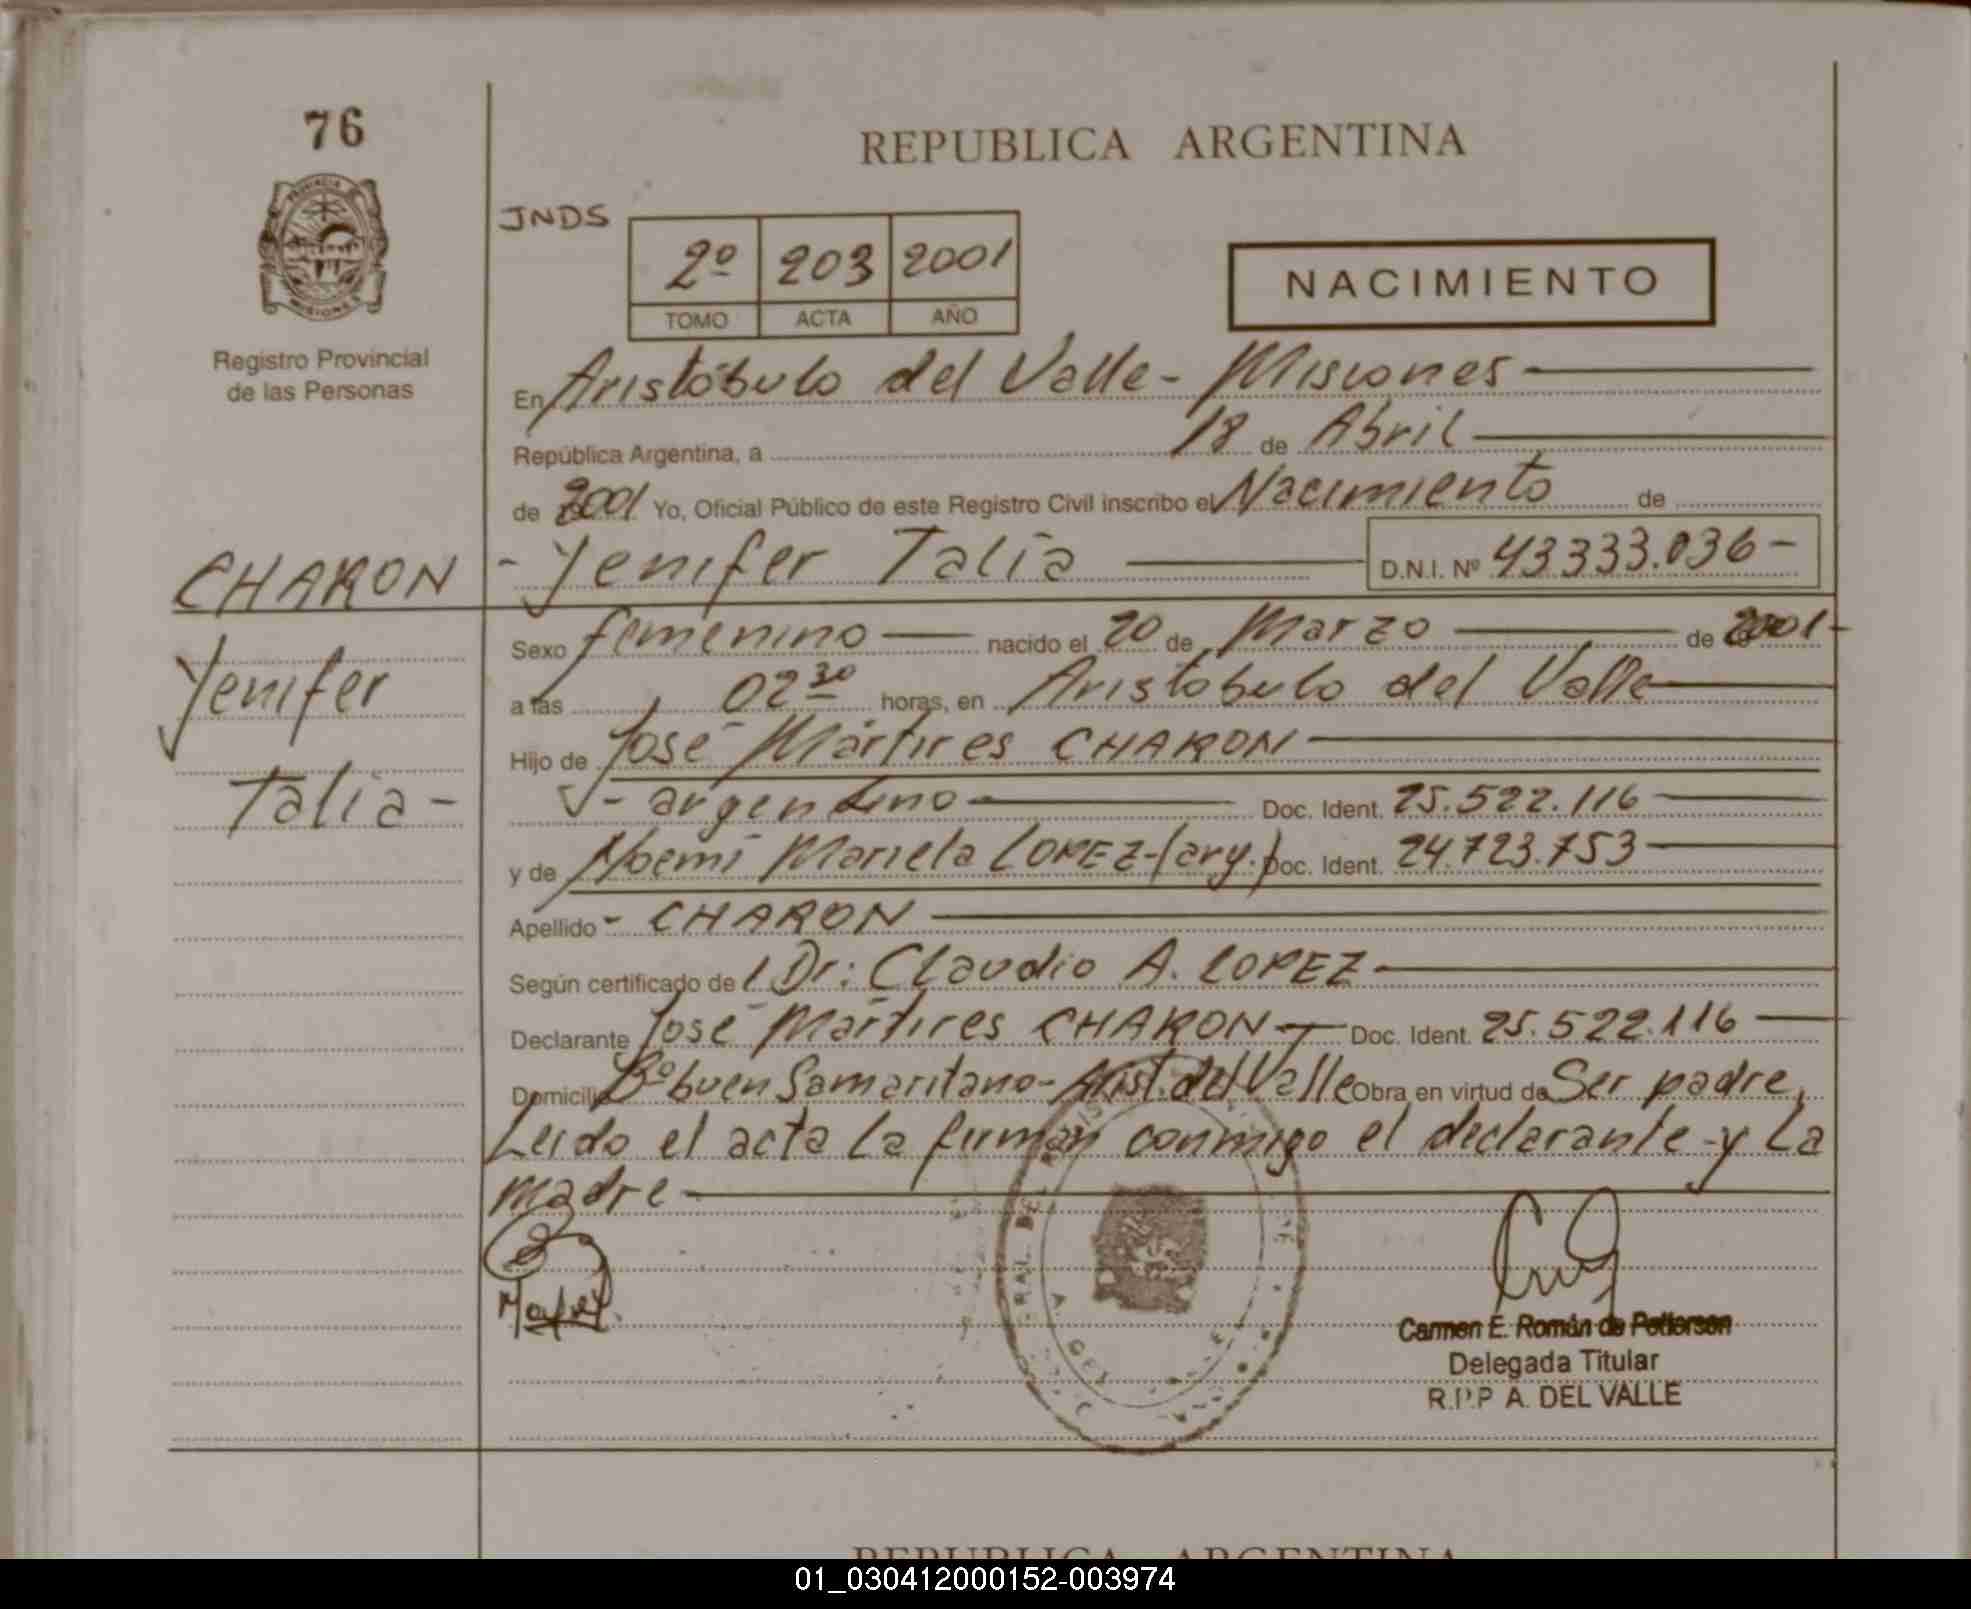 76
REPUBLICA ARGENTINA
PROVINCIA DE
MISIONES
Registro Provincial
de las Personas
JNDS
2º 203 2001
TOMO ACTA AÑO
NACIMIENTO
En Aristóbulo del Valle - Misiones
República Argentina, a 18 de Abril
de 2001 Yo, Oficial Público de este Registro Civil inscribo el Nacimiento de
CHARON - Yenifer Talía D.N.I. Nº 43333.036 -
Sexo femenino nacido el 20 de Marzo de 2001 -
Yenifer
a las 02 30 horas, en Aristóbulo del Valle
Hijo de José Mártires CHARON
Talía -
- argentino Doc. Ident. 25.522.116
y de Noemí Mariela LOPEZ - (arg.) Doc. Ident. 24.723.753
Apellido - CHARON
Según certificado de l Dr: Claudio A. LOPEZ
Declarante José Mártires CHARON Doc. Ident. 25.522.116
Domicilio Bº buen Samaritano - Arist. del Valle Obra en virtud de Ser padre,
Leido el acta la firman conmigo el declarante y la
madre -
Carmen E. Román de Petterson
Delegada Titular
R.P.P A. DEL VALLE
REPUBLICA ARGENTINA
01_030412000152-003974